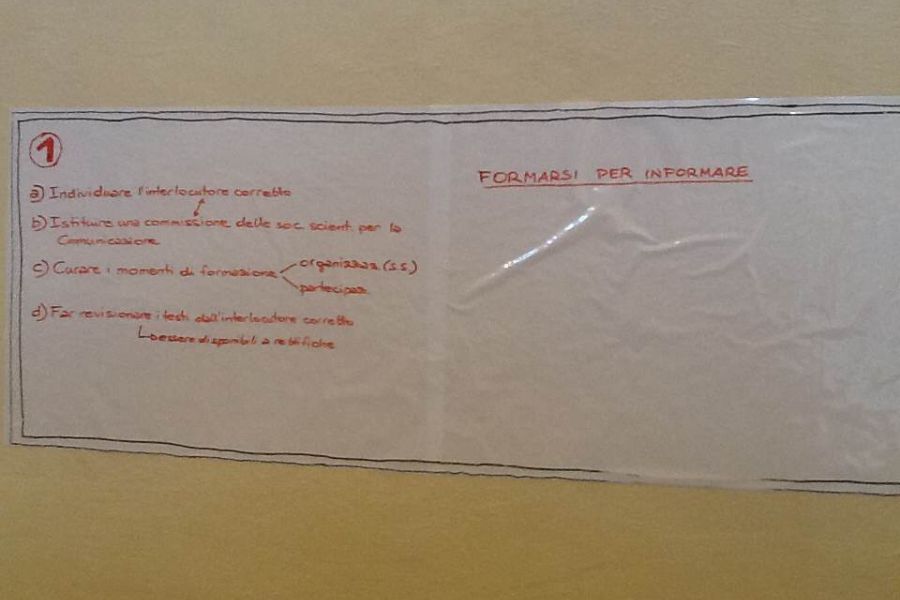 1
a) Individuare l'interlocutore corretto
b) Istituire una commissione delle soc. scient. per la
Comunicazione
c) Curare i momenti di formazione
organizzaz. (s.s)
partecipaz.
d) Far revisionare i testi dall'interlocutore corretto
essere disponibili a rettifiche
FORMARSI PER INFORMARE